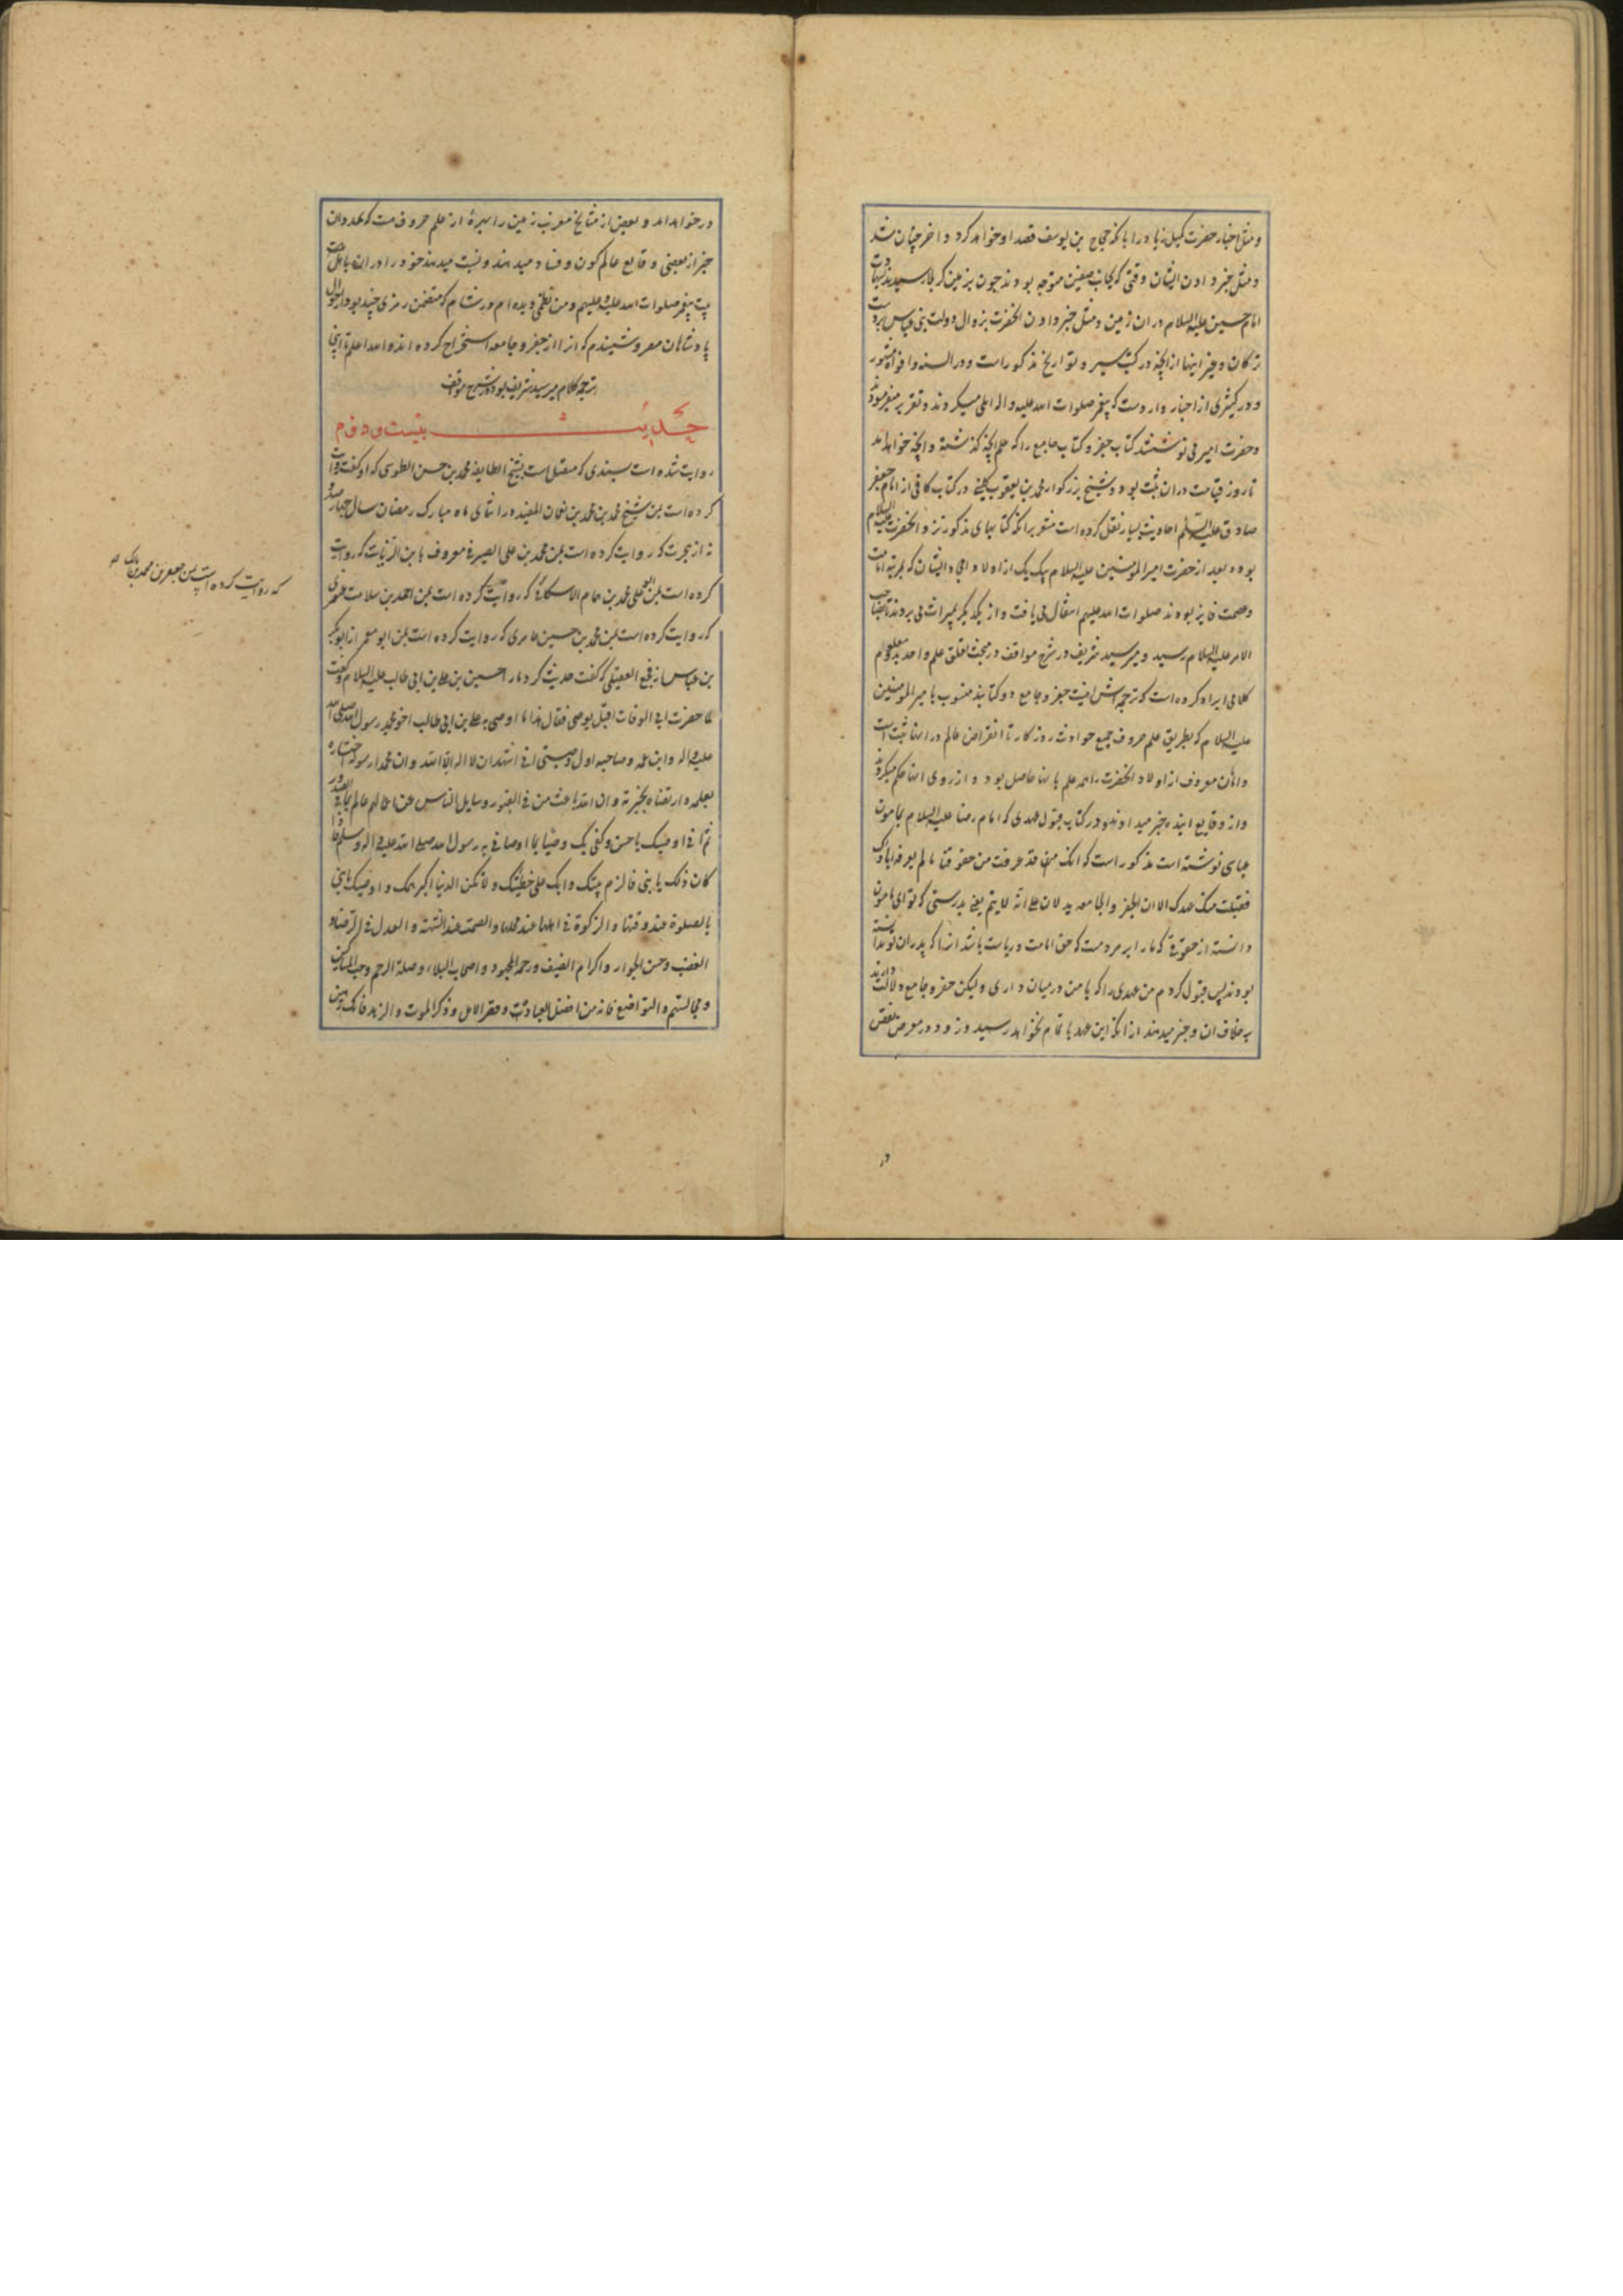 و مثل اخبار حضرت کمیل زیاد را بانکه حجاج بن یوسف قصد او خواهد کرد و اخر چنان شد
و مثل خبر دادن ایشان وقتی که بجانب صفین متوجه بودند چون بزمین کربلا رسیدند بشهادت
امام حسین علیه السلام در ان زمین و مثل خبر دادن انحضرت بزوال دولت بنی عباس بردست
ترکان و غیر اینها از انچه در کتب سیر و تواریخ مذکور است و در السنه و افواه مشهور
و در کثیری از اخبار وارد است که پیغمبر صلوات الله علیه و اله املی میکردند و تقریر میفرمودند
و حضرت امیر می نوشتند کتاب جفر و کتاب جامع را که علم انچه گذشته و انچه خواهد امد
تا روز قیامت در ان ثبت بود و شیخ بزرگوار محمد بن یعقوب کلینی در کتاب کافی از امام جعفر
صادق علیه السلم احادیث بسیار نقل کرده است مشعر برانکه کتابهای مذکور نزد انحضرت علیه السلام
بوده و بعد از حضرت امیر المومنین علیه السلام بیک یک از اولاد امجاد ایشان که بمرتبه امامت
و عصمت فایز بودند صلوات الله علیهم انتقال می یافت و از یکدیگر بمیراث می بردند تا بصاحب
الامر علیه السلام رسید و میر سید شریف در شرح مواقف در مبحث تعلق علم واحد بدو معلوم
کلامی ایراد کرده است که ترجمه اش اینست جفر و جامع دو کتابند منسوب بامیر المومنین
علیه السلام که بطریق علم حروف جمیع حوادث روزگار تا انقراض عالم در انها ثبت است
و امامان معروف از اولاد انحضرت را همه علم بانها حاصل بود و از روی انها حکم میکردند
و از وقایع اینده خبر میدادند و در کتاب قبول عهدی که امام رضا علیه السلام بمامون
عباسی نوشته است مذکور است که انک قد عرفت من حقوقنا ما لم یعرفه اباؤک
فقبلت منک عهدک الا ان الجفر و الجامعه یدلان علی انه لا یتم یعنی بدرستی که تو ای مامون
دانسته از حقوقی که ما را بر مردمست که حق امامت و ریاست باشد انرا که پدران تو ندانسته
بودند پس قبول کردم من عهدی را که با من در میان داری و لیکن جفر و جامع دلالت دارند
بر خلاف ان و خبر میدهند از انکه این عهد باتمام نخواهد رسید و زود در معرض نقض
در
در خواهد امد و بعضی از مشایخ مغرب زمین را بهرۀ از علم حروف هست که بمدد ان
خبر از بعضی وقایع عالم کون و فساد میدهند و نسبت میدهند خود را در ان باهل
بیت پیغمبر صلوات الله علیه و علیهم و من نظمی دیده ام در شام که متضمن رمزی چند بود از احوال
پادشاهان مصر و شنیدم که انرا از جفر و جامعه استخراج کرده اند و الله اعلم تا اینجا
ترجمه کلام میر سید شریف بود در شرح مواقف
حدیث بیست و دوم
روایت شده است بسندی که متصل است بشیخ الطایفه محمد بن حسن الطوسی که او گفت روایت
کرده است بمن شیخ محمد بن محمد بن نعمان المفید در اثنای ماه مبارک رمضان سال چهارصد و
نه از هجرت که روایت کرده است بمن محمد بن علی الصیرفی معروف بابن الزیات که روایت
کرده است بمن ابو علی محمد بن همام الاسکافی که روایت کرده است بمن احمد بن سلامت غنوی
که روایت کرده است بمن محمد بن حسین عامری که روایت کرده است بمن ابو معمر از ابو بکر
بن عیاس از فجیع العقیلی که گفت حدیث کرد مرا حسین بن علی بن ابی طالب علیه السلام که گفت
لما حضرت ابی الوفات اقبل یوصی فقال هذا ما اوصی به علی بن ابی طالب اخو محمد رسول الله صلی الله
علیه و اله و ابن عمه و صاحبه اول وصیتی انی اشهد ان لا اله الا الله و ان محمدا رسوله اختاره
بعلمه و ارتضاه بخیرته و ان الله باعث من فی القبور و سایل الناس عن اعمالهم عالم بما فی الصدور
ثم انی اوصیک یا حسن و کفی بک وصیا بما اوصانی به رسول الله صلی الله علیه و اله و سلم فاذا
کان ذلک یا بنی فالزم بیتک و ابک علی خطیئتک و لا تکن الدنیا اکبر همک و اوصیک یا بنی
بالصلوة عند وقتها و الزکوة فی اهلها عند محلها و الصمت عند الشبهة و العدل فی الرضا و
الغضب و حسن الجوار و اکرام الضیف و رحمة المجهود و اصحاب البلاء و صلة الرحم و حب المساکین
و مجالستهم و التواضع فانه من افضل العبادت و قصر الامل و ذکر الموت و الزهد فانک رهین
که روایت کرده است بمن جعفر بن محمد بن مالک صح